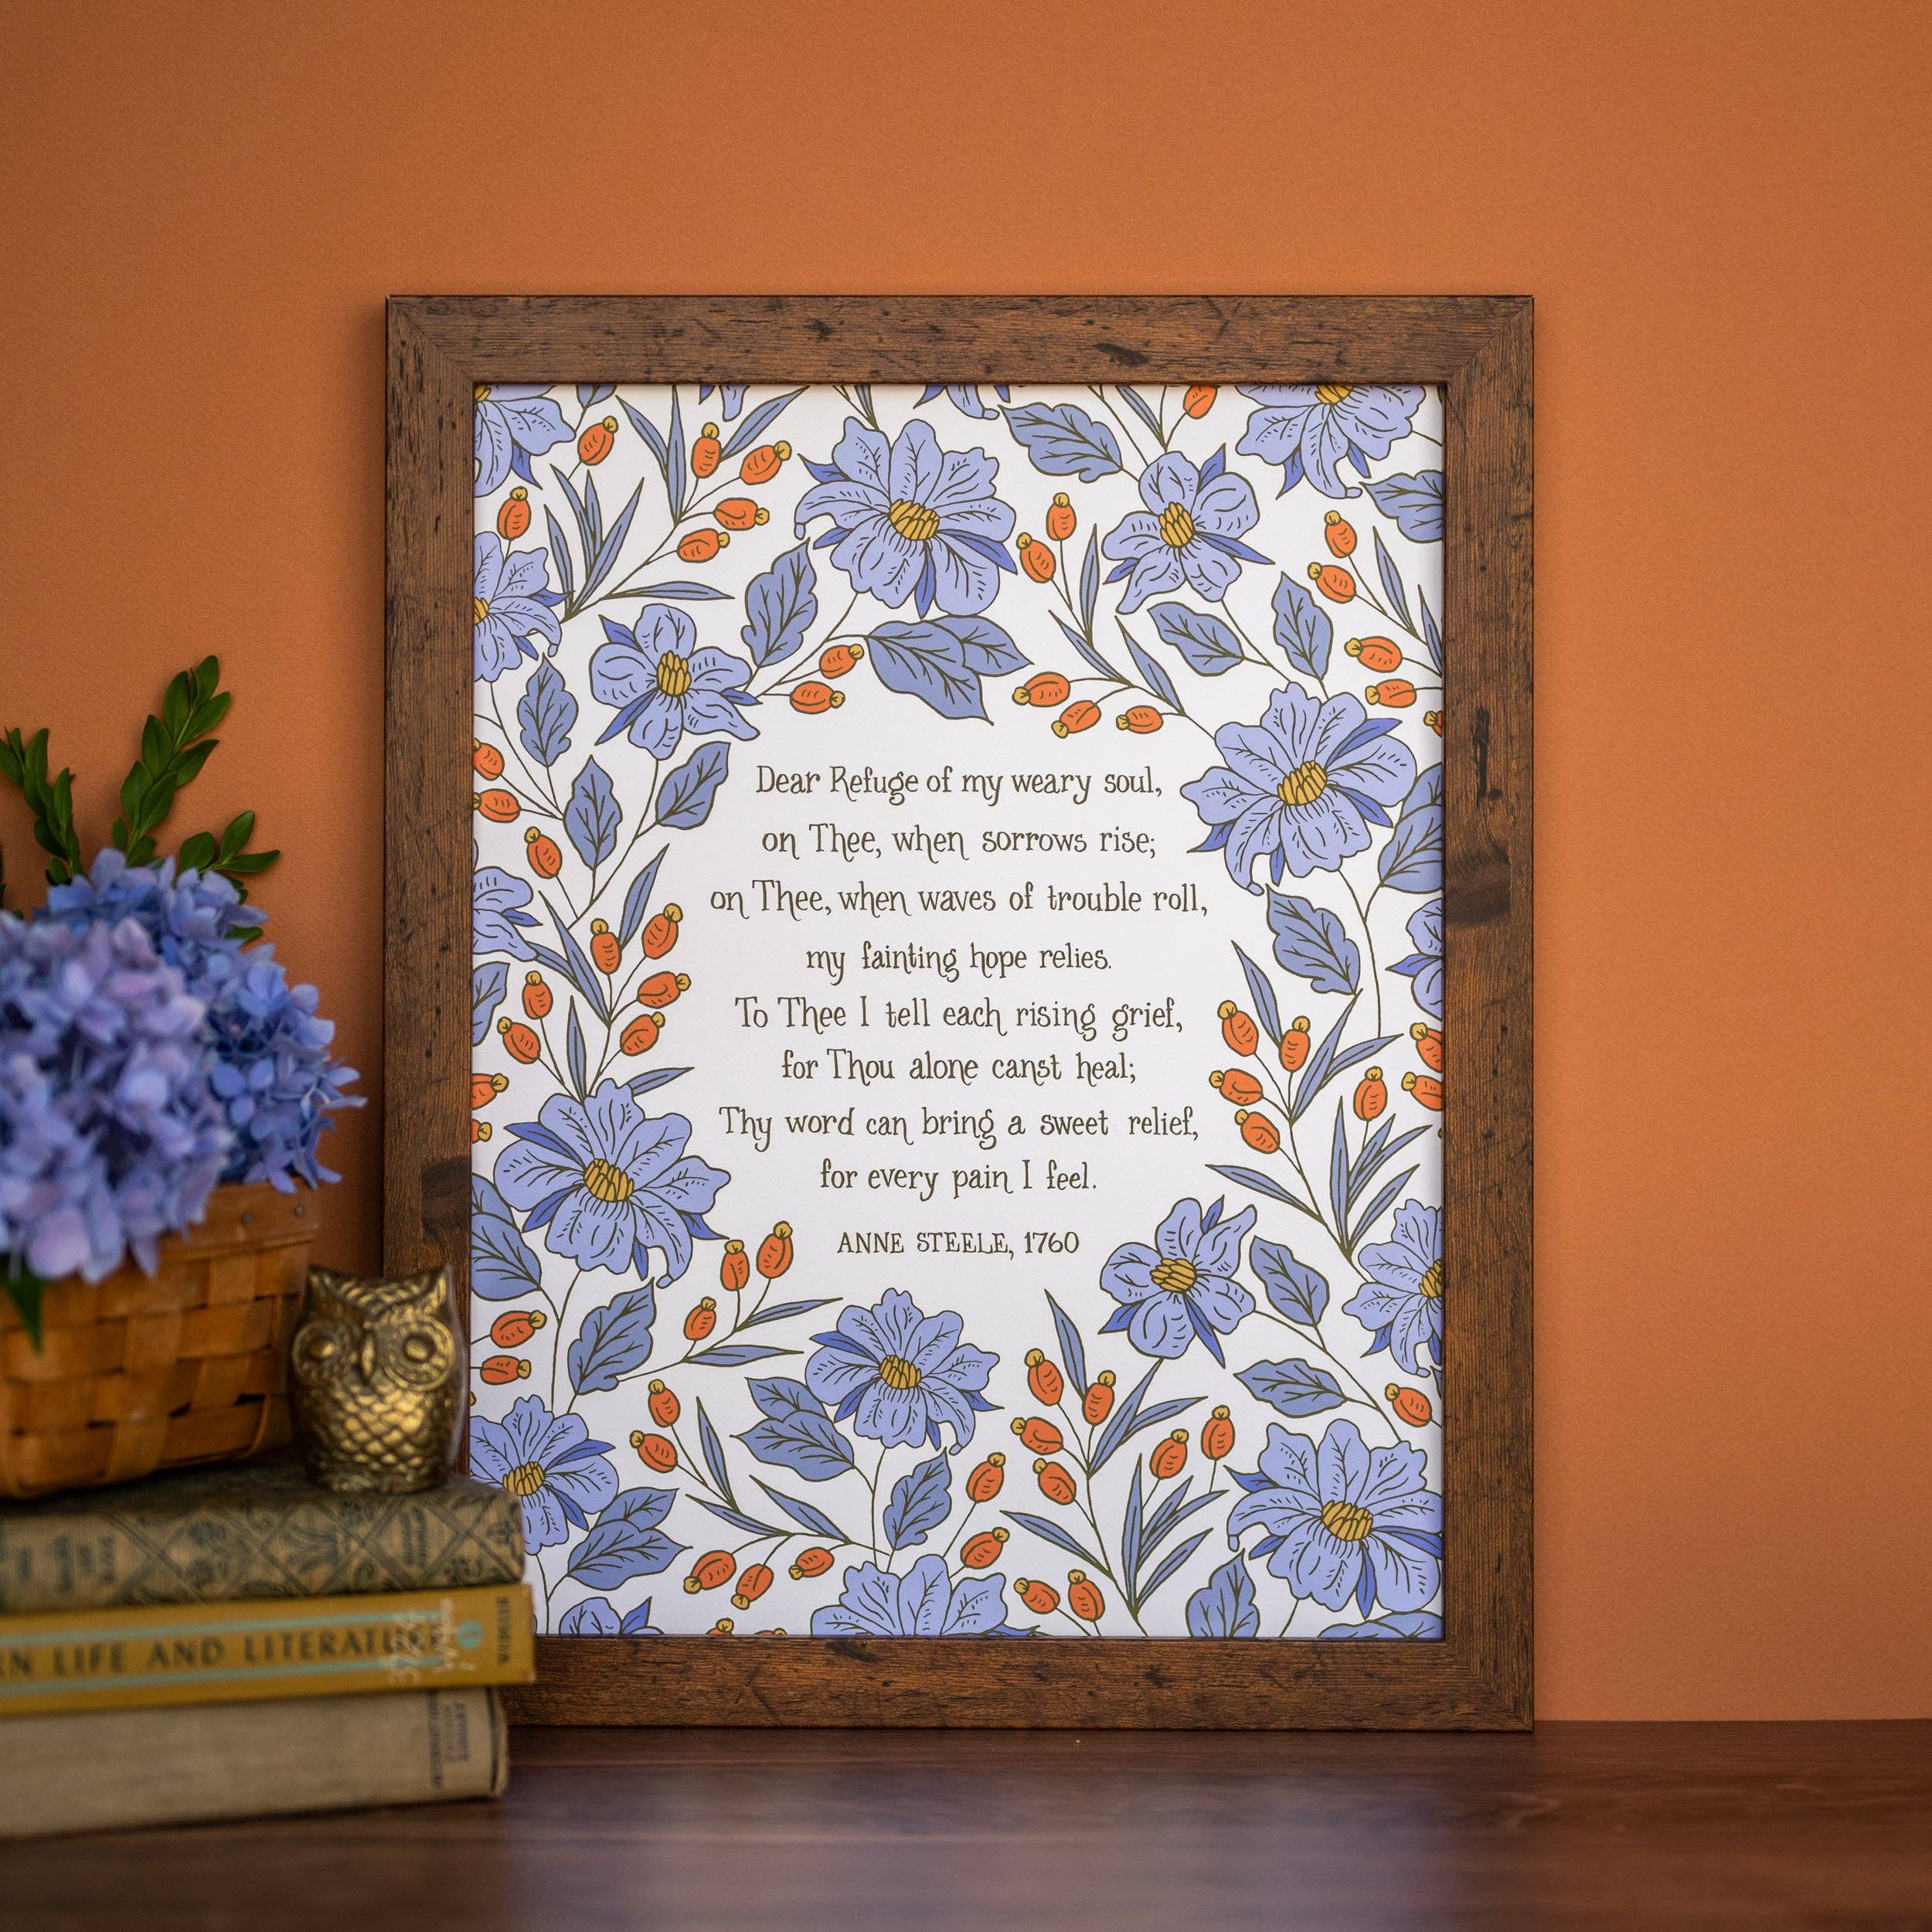 Dear Refuge of my weary soul,
on Thee, when sorrows rise;
on Thee, when waves of trouble roll,
my fainting hope relies.
To Thee I tell each rising grief,
for Thou alone canst heal;
Thy word can bring a sweet relief,
for every pain I feel.
ANNE STEELE, 1760
LIFE AND LITERATURE